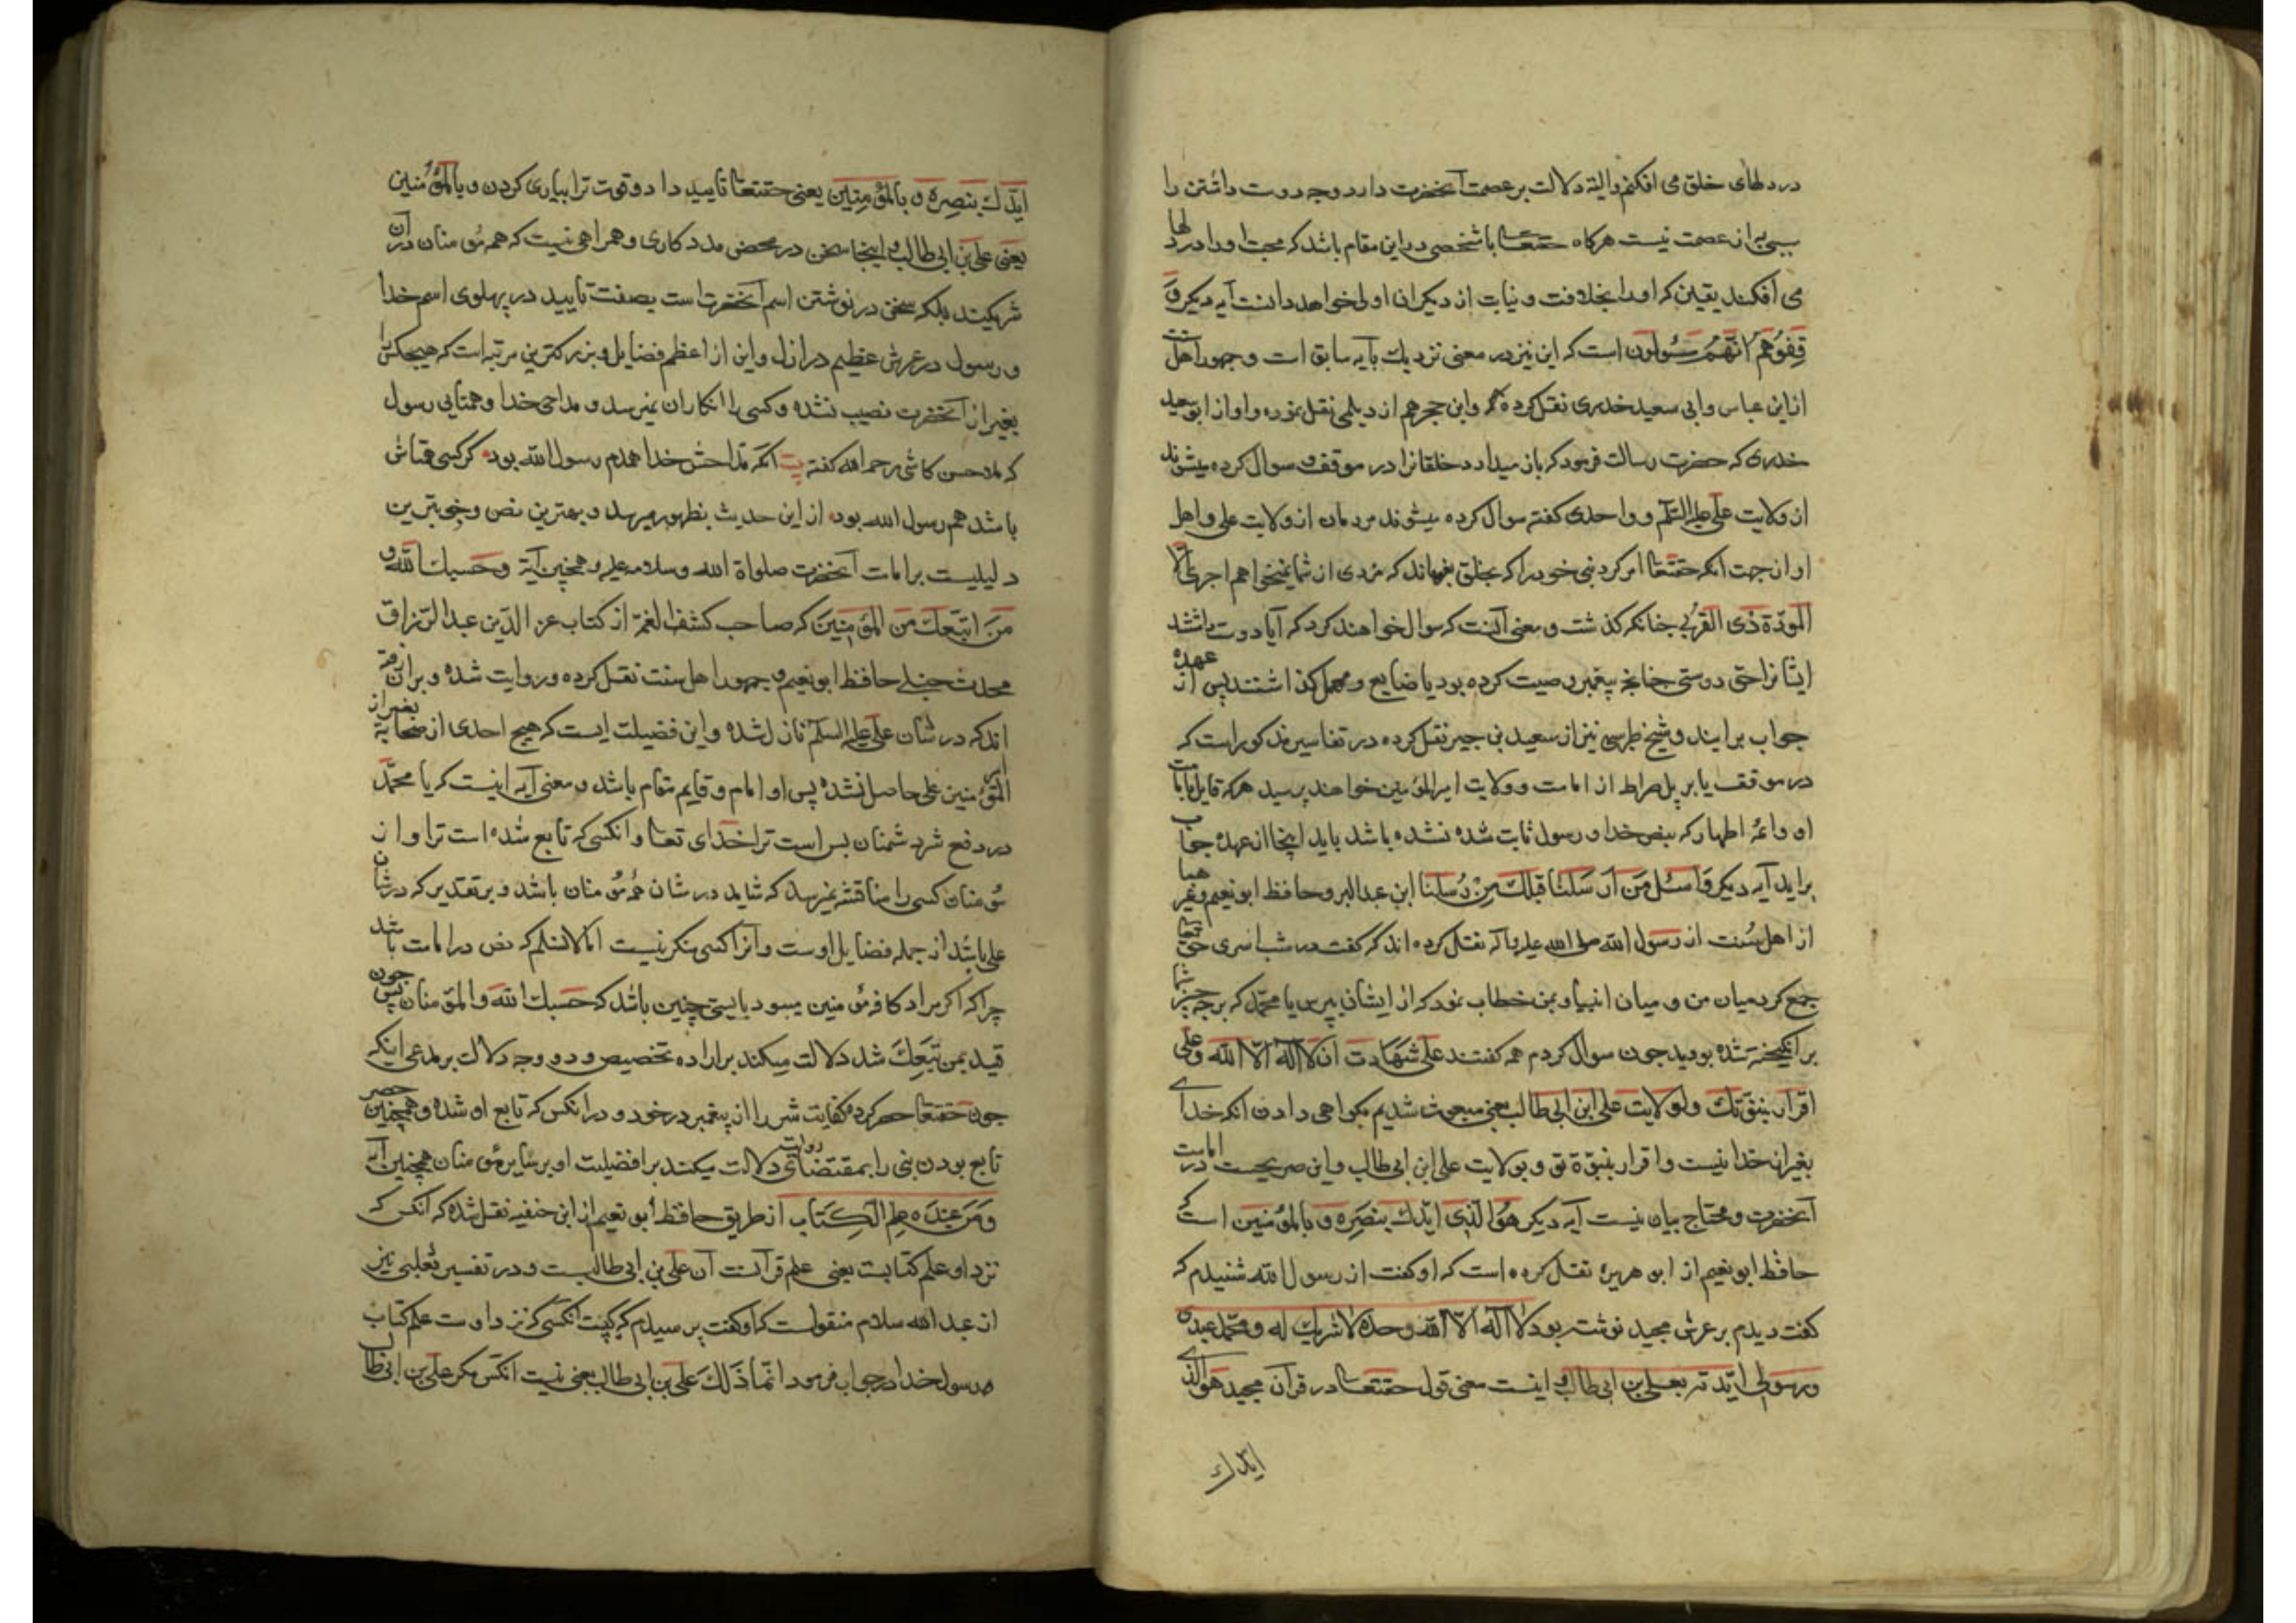 در دلهای خلق می افکنم والیته دلالت بر عصمت آنحضرت دارد وجه دوست داشتن را
سببی به از عصمت نیست هرکاه حقتعالی با شخصی در این مقام باشد که محبت او را در دلها
می افکند یقین که او را بخلافت و نیابت از دیکران اولی خواهد دانست آیه دیکر وَ
قِفُوهُم اِنَّهُم مَسئُولُون است که این نیز در معنی نزدیک بآیه سابق است و جمهور اهل سنت
از ابن عباس وابی سعید خدری نقل کرده اند وابن حجر هم از دیلمی نقل نموده و او از ابو سعید
خدری که حضرت رسالت فرمود که باز میدارد خلقانرا در موقف و سوال کرده میشوند
از ولایت علی علیه السلم و واحدی کفته سوال کرده میشوند مردمان از ولایت علی و اهل
او از جهت انکه حقتعا امر کرد نبی خود را که بخلق بفهماند که مزدی از شما نمیخواهم اجری الّا
المودّة ذی القربی چنانکه کذشت و معنی آنست که سوال خواهند کرد که آیا دوست داشتند
ایشانرا حق دوستی چنانچه پیغمبر وصیت کرده بود یا ضایع و مهمل کذاشتند پس از عهده
جواب برایند و شیخ طبرسی نیز از سعید بن جبیر نقل کرده در تفاسیر مذکور است که
در موقف یا بر پل صراط از امامت و ولایت امیرالمؤمنین خواهند پرسید هرکه قایل بامامت
او وائمّه اطهار که بنص خدا و رسول ثابت شده نشده باشد باید اینجا از عهده جواب
براید آیه دیکر وَاسئل مَن اَرسَلنا قبلک مِن رُسُلنا ابن عبدالبر و حافظ ابو نعیم و غیر هما
از اهل سُنت از رسول الله صلی الله علیه واله نقل کرده اند که کفت در شب اسری حق تعالی
جمع کرد میان من و میان انبیا و بمن خطاب نمود که از ایشان بپرس یا محمّد که بر چه چیز شما
بر انکیخته شده بودید چون سوال کردم همه کفتند علی شهادت ان لا اله الّا الله وعلی
اقرار بنبوّتک و لولایت علی ابن ابی طالب یعنی مبعوث شدیم بکواهی دادن انکه خدای
بغیر از خدا نیست و اقرار بنبوّة تو و بولایت علی ابن ابی طالب و این صریحست در امامت
آنحضرت و محتاج بیان نیست آیه دیکر هُوَ الّذی ایّدک بنصره و بالمؤمنین است که
حافظ ابو نعیم از ابو هریره نقل کرده است که او کفت از رسول الله شنیدم که
کفت دیدم بر عرش مجید نوشته بود لا اله الّا الله وحده لا شریک له ومحمّد عبدی
ورسولی ایّدته بعلی بن ابی طالب و اینست معنی قول حقتعا در قرآن مجید هو الذی
ایدک
ایّدک بنصره و بالمؤمنین یعنی حقتعا تایید داد و قوت ترا بیاری کردن و بالمؤمنین
یعنی علی بن ابی طالب و اینجا سخن در محض مددکاری و همراهی نیست که همه مؤمنان در ان
شریکند بلکه سخن در نوشتن اسم آنحضرت است بصفت تایید در پهلوی اسم خدا
و رسول در عرش عظیم در ازل و این از اعظم فضایل و بزرکترین مرتبه است که هیچکس را
بغیر از آنحضرت نصیب نشده و کسی را انکار ان نمیرسد و مداحی خدا و همتایی رسول
که ملا حسن کاشی رحمه الله کفته بیت انکه مدّاحش خدا همدم رسول الله بود کر کسی همتاش
باشد هم رسول الله بود از این حدیث بظهور میرسد و بهترین نص و خوبترین
دلیلیست بر امامت آنحضرت صلواة الله وسلامه علیه و همچنین آیة وحسبک الله و
مَن اتبعک مِن المؤمِنین که صاحب کشف الغمّه از کتاب عز الدّین عبد الرّزاق
محدث حنبلی حافظ ابو نعیم و جمهور اهل سنت نقل کرده و روایت شده و بر ان رفته
اند که در شان علی علیه السلم نازل شده و این فضیلت ایست که هیچ احدی از صحابه بغیر از
امیر المؤمنین علی حاصل نشده پس او امام و قایم مقام باشد و معنی آیه اینست که یا محمّد
در دفع شر دشمنان بس است ترا خدای تعا و انکسی که تابع شده است ترا و از
مؤمنان کسی را مناقشه نمیرسد که شاید در شان همه مؤمنان باشد و بر تقدیر که در شان
علی باشد از جمله فضایل اوست و آنرا کسی منکر نیست امّا لانسلم که نص در امامت باشد
چرا که اکر مراد کافه مؤمنین میبود بایستی چنین باشد که حسبک الله والمؤمنان پس چون
قید بمن تّبعک شد دلالت میکند بر اراده تخصیص و دو وجه دلالت بر مدعی اینکه
چون حقتعا حصر کرده کفایت شر را از پیغمبر در خود و در انکس که تابع او شده و همچنین حصر
تابع بودن نبی را بمقتضای روایت دلالت میکند بر افضلیت او بر سایر مؤمنان همچنین آیه
وَمَن عِندَه عِلم الکِتاب از طریق حافظ ابو نعیم از ابن حنفیه نقل شده که آنکس که
نزد او علم کتابست یعنی علم قرآنست آن علی بن ابی طالبست و در تفسیر ثعلبی نیز
از عبد الله سلام منقولست که او کفت پرسیدم که کیست انکسی که نزد اوست علم کتاب
رسول خدا در جواب فرمود انّما ذَلک علی بن ابی طالب یعنی نیست انکس مکر علی بن ابی طالب